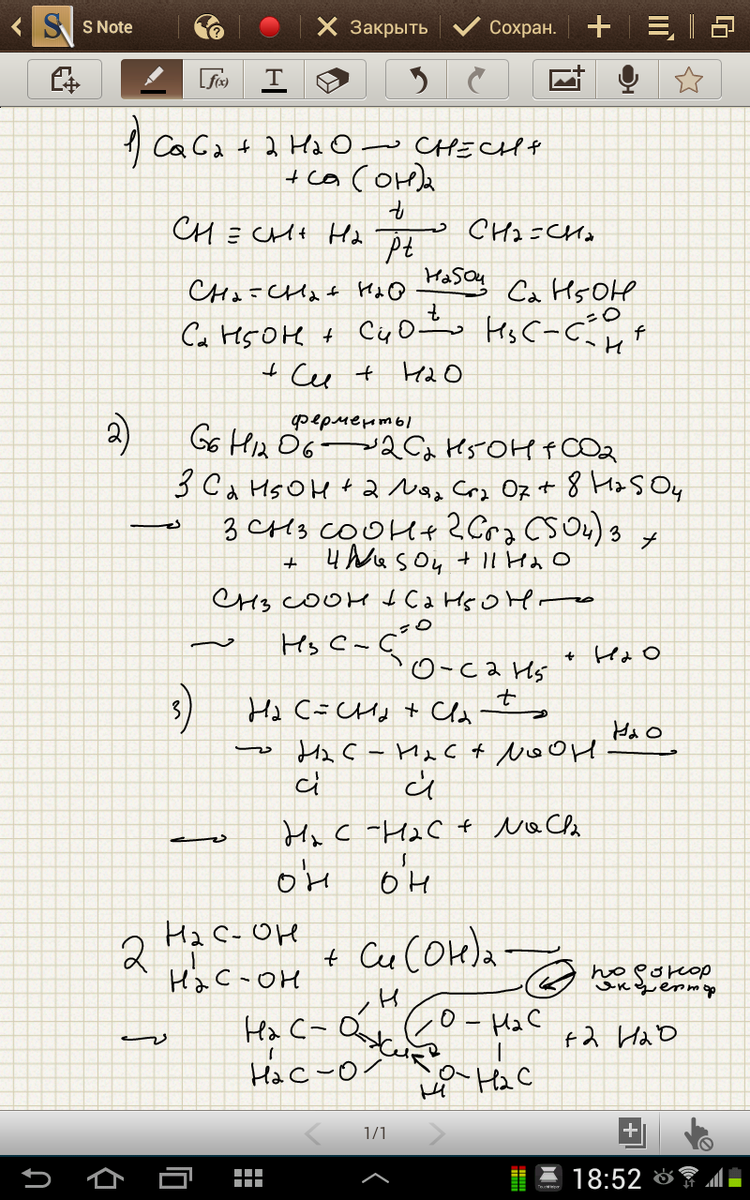 S Note
Закрыть
Сохран.
f(x)
T
1) CaC2 + 2H2O → CH≡CH +
+ Ca(OH)2
CH≡CH + H2 →(t, pt) CH2=CH2
CH2=CH2 + H2O →(H2SO4) C2H5OH
C2H5OH + CuO →(t) H3C-C(=O)-H +
+ Cu + H2O
2) C6H12O6 →(ферменты) 2C2H5OH + CO2
3C2H5OH + 2Na2Cr2O7 + 8H2SO4
→ 3CH3COOH + 2Cr2(SO4)3 +
+ 4NaSO4 + 11H2O
CH3COOH + C2H5OH →
→ H3C-C(=O)-O-C2H5 + H2O
3) H2C=CH2 + Cl2 →(t)
→ H2C-H2C + NaOH →(H2O)
Cl Cl
→ H2C-H2C + NaCl2
OH OH
2 H2C-OH
H2C-OH + Cu(OH)2 →
по донор
акцептор
H
→ H2C-O Cu O-H2C + 2H2O
H2C-O O-H2C
H
1/1
18:52